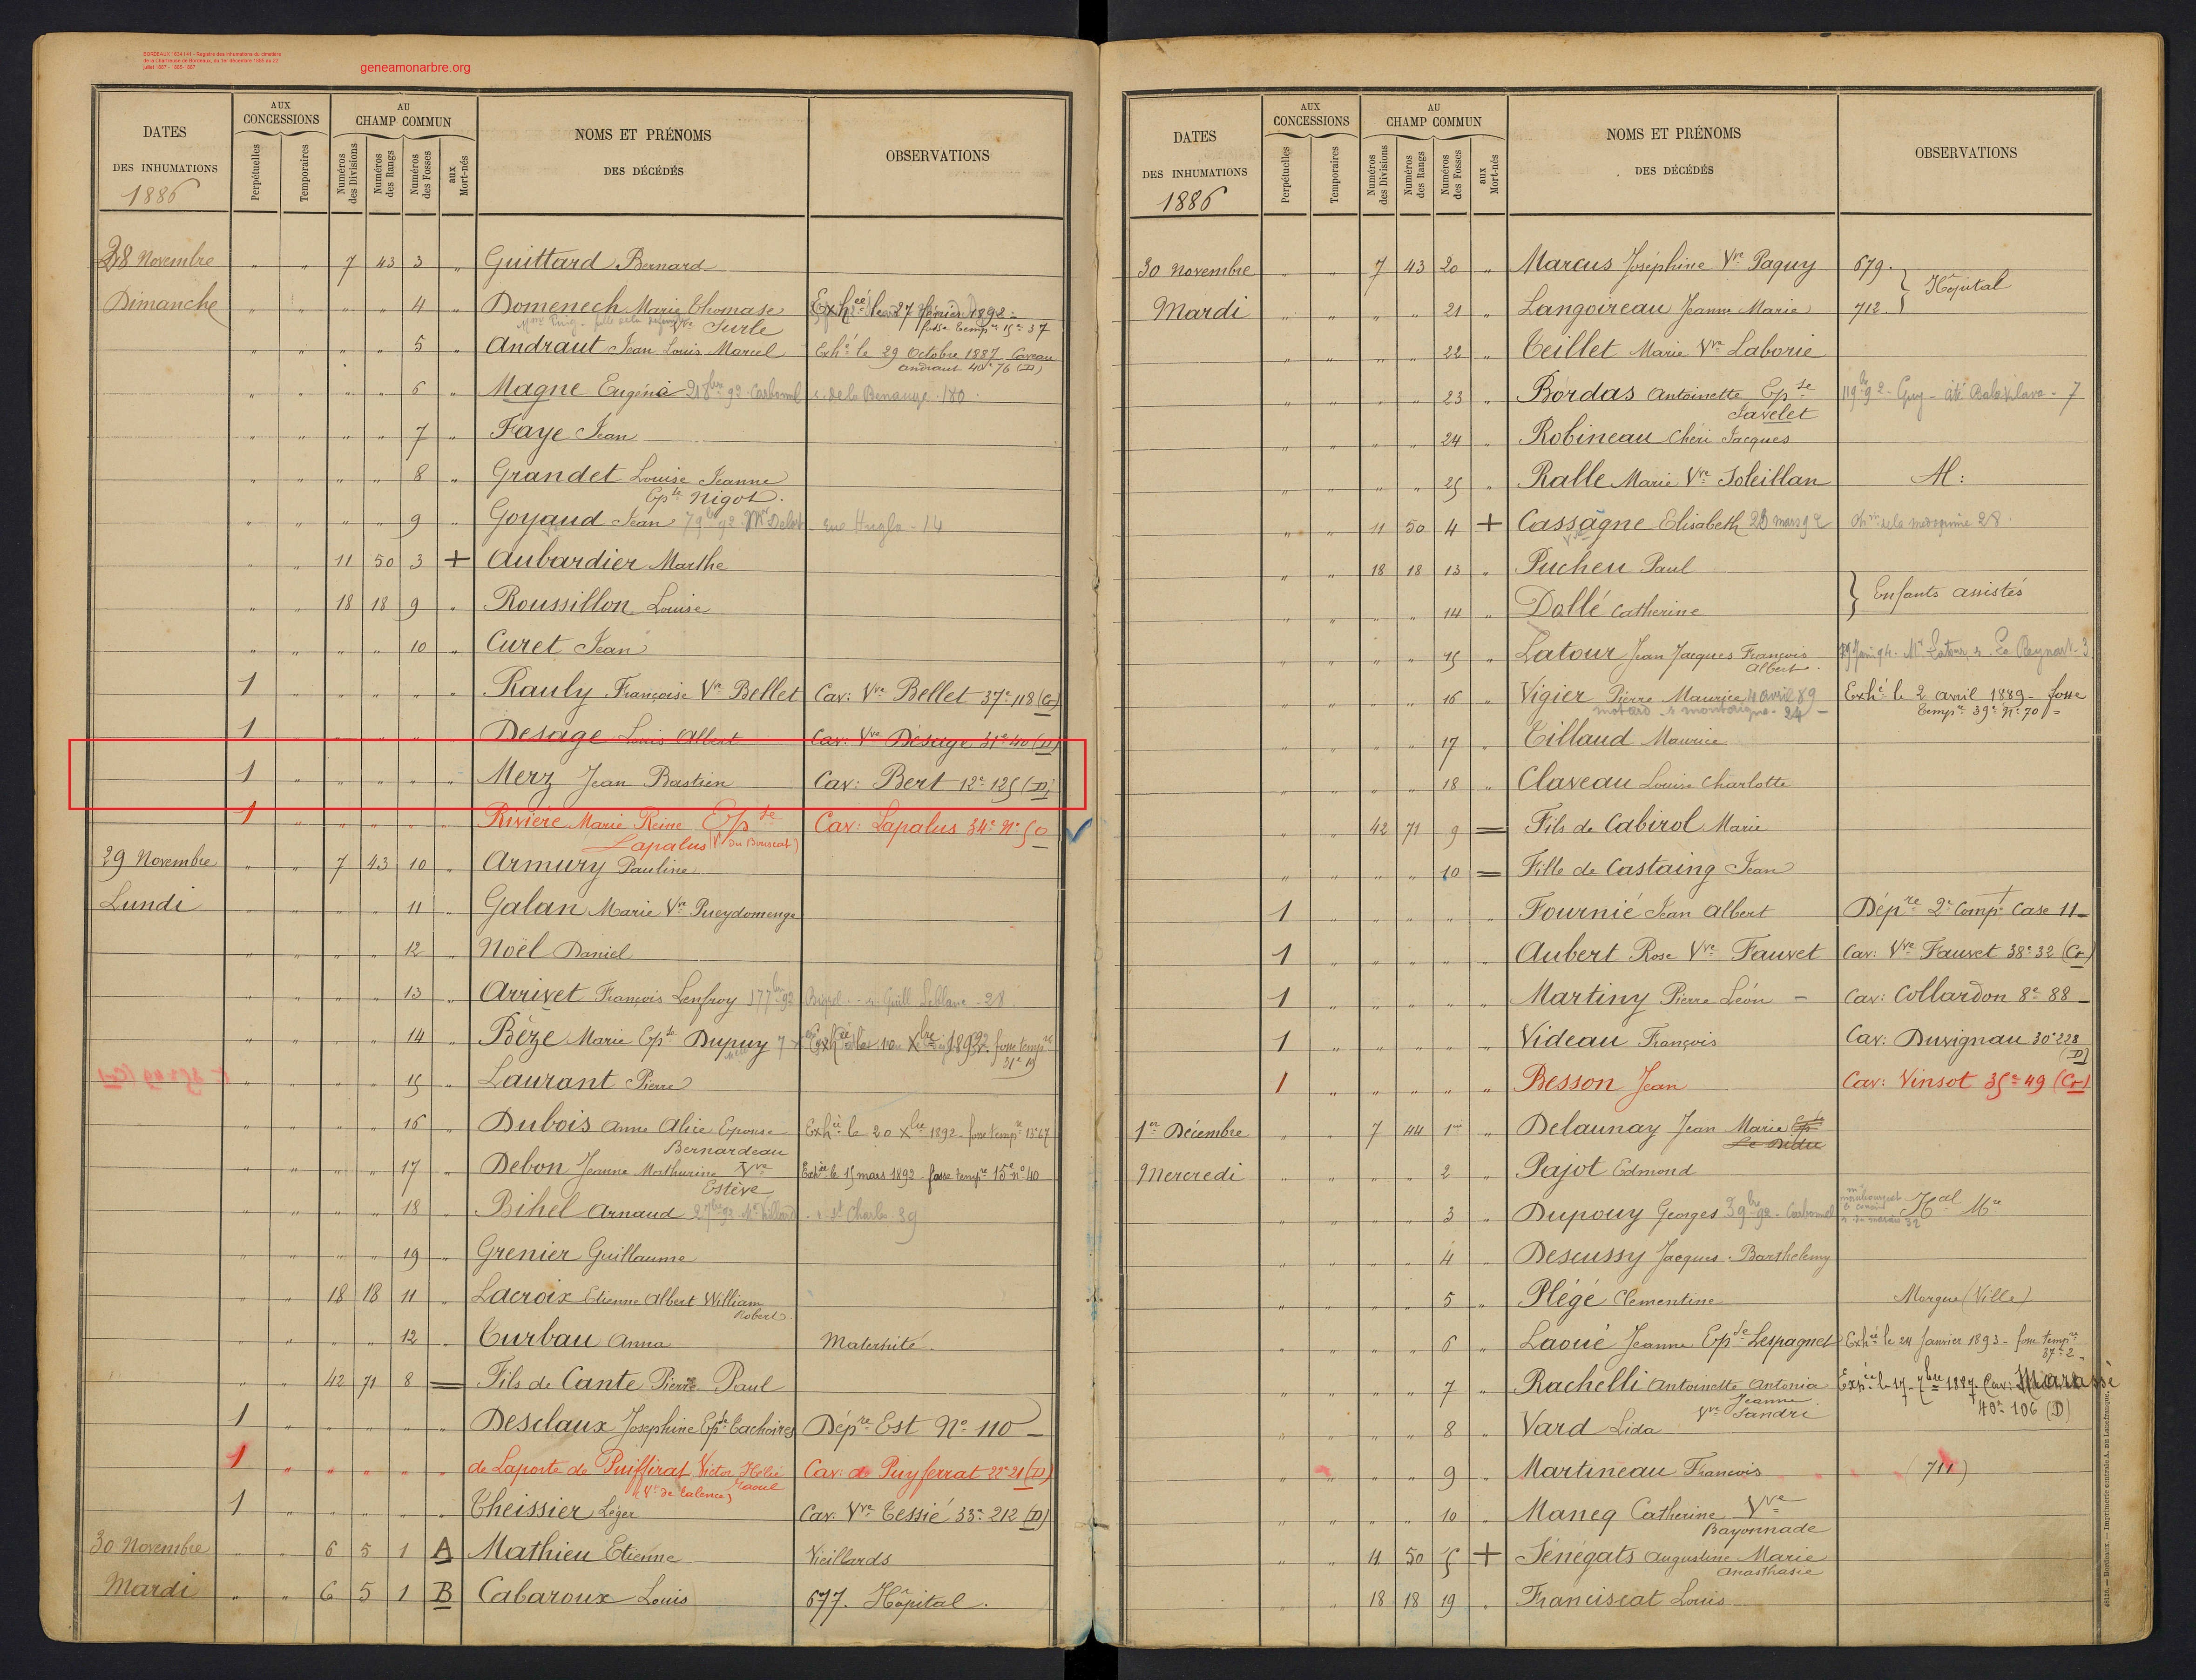 BORDEAUX 1634 I 41 - Registre des inhumations du cimetière
de la Chartreuse de Bordeaux, du 1er décembre 1885 au 22
juillet 1887 - 1885-1887
geneamonarbre.org
DATES
DES INHUMATIONS
1886
AUX
CONCESSIONS
Perpétuelles
Temporaires
AU
CHAMP COMMUN
Numéros des Divisions
Numéros des Rangs
Numéros des Fosses
aux Mort-nés
NOMS ET PRÉNOMS
DES DÉCÉDÉS
OBSERVATIONS
28 Novembre " " 7 43 3 " Guittard Bernard
Dimanche " " " " 4 " Domenech Marie Thomase Exhée le 27 février 1892
Vve Surle fosse tempre 15e 37
" " " " 5 " Andraut Jean Louis Marcel Exhé le 29 Octobre 1887 Caveau
Andraut 40e 76 (D)
" " " " 6 " Magne Eugénie r. de la Benauge 180
" " " " 7 " Faye Jean
" " " " 8 " Grandet Louise Jeanne
Epse Nigot
" " " " 9 " Goyaud Jean rue Hugla 14
" " 11 50 3 + Aubardier Marthe
" " 18 18 9 " Roussillon Louise
" " " " 10 " Curet Jean
1 " " " " " Rauly Françoise Vve Bellet Cav: Vve Bellet 37e 118 (G)
1 " " " " " Desage Louis Albert Cav: Vve Desage 31e 40 (D)
1 " " " " " Merz Jean Bastien Cav: Bert 12e 125 (D)
1 " " " " " Rivière Marie Reine Epse Cav: Lapalus 34e No 50
Lapalus (du Bouscat)
29 Novembre " " 7 43 10 " Armury Pauline
Lundi " " " " 11 " Galan Marie Vve Pueydomenge
" " " " 12 " Noël Daniel
" " " " 13 " Arrivet François Lenfroy r. Guill. Leblanc 28
" " " " 14 " Bèze Marie Epse Dupuy Exhée le 10 Xbre 1892 fosse tempre
" " " " 15 " Laurant Pierre
" " " " 16 " Dubois Anne Alice Epouse Exhée le 20 Xbre 1892 - fosse tempre 13e 67
Bernardeau
" " " " 17 " Debon Jeanne Mathurine Vve Exhée le 15 mars 1892 - fosse tempre 15e no 40
Estève
" " " " 18 " Bihel Arnaud r. St Charles 39
" " " " 19 " Grenier Guillaume
" " 18 18 11 " Lacroix Etienne Albert William
Robert
" " " " 12 " Turbau Anna Maternité
" " 42 71 8 = Fils de Cante Pierre Paul
1 " " " " " Desclaux Josephine Epse Cachoires Dépre Est No 110
1 " " " " " de Laporte de Puiffirat Victor Hélie Cav: de Puyferrat 22e 21 (D)
Raoul
(Vt de Talence)
1 " " " " " Theissier Léger Cav: Vve Tessié 33e 212 (D)
30 Novembre " " 6 5 1 A Mathieu Etienne Vieillards
Mardi " " 6 5 1 B Cabaroux Louis 677. Hôpital.
DATES
DES INHUMATIONS
1886
AUX
CONCESSIONS
Perpétuelles
Temporaires
AU
CHAMP COMMUN
Numéros des Divisions
Numéros des Rangs
Numéros des Fosses
aux Mort-nés
NOMS ET PRÉNOMS
DES DÉCÉDÉS
OBSERVATIONS
30 Novembre " " 7 43 20 " Marcus Joséphine Vve Paquy 679.
Hôpital
Mardi " " " " 21 " Langoireau Jeanne Marie 712.
" " " " 22 " Teillet Marie Vve Laborie
" " " " 23 " Bordas Antoinette Epse Balaklava - 7
Javelet
" " " " 24 " Robineau Chéri Jacques
" " " " 25 " Ralle Marie Vve Soleillan M:
" " 11 50 4 + Cassagne Elisabeth 28
" " 18 18 13 " Pucheu Paul
Enfants assistés
" " " " 14 " Dollé Catherine
" " " " 15 " Latour Jean Jacques François
Albert
" " " " 16 " Vigier Pierre Maurice 11 avril 89 Exhé le 2 avril 1889 - fosse
tempre 39e No 70
" " " " 17 " Tillaud Maurice
" " " " 18 " Claveau Louise Charlotte
" " 42 71 9 = Fils de Cabirol Marie
" " " " 10 = Fille de Castaing Jean
1 " " " " " Fournié Jean Albert Dépre 2e Compt Case 11
1 " " " " " Aubert Rose Vve Fauvet Cav: Vve Fauvet 38e 32 (G)
1 " " " " " Martiny Pierre Léon - Cav: Collardon 8e 88
1 " " " " " Videau François Cav: Duvignau 30e 228
(D)
1 " " " " " Besson Jean Cav: Vinsot 35e 49 (G)
1er Décembre " " 7 44 1er " Delaunay Jean Marie
Mercredi " " " " 2 " Pajot Edmond
" " " " 3 " Dupouy Georges Hal Mre
" " " " 4 " Descussy Jacques Barthelemy
" " " " 5 " Plégé Clementine Morgue (Ville)
" " " " 6 " Laoué Jeanne Epse Lespagnet Exhée le 24 Janvier 1893 - fosse tempre
37e 2
" " " " 7 " Rachelli Antoinette Antonia Exhée le 17 7bre 1887. Cav: Miarassé
Jeanne 40e 106 (D)
Vve Sandri
" " " " 8 " Vard Lida
" " " " 9 " Martineau François (711)
" " " " 10 " Maneq Catherine Vve
Bayonnade
" " 11 50 5 + Sénégats Augustine Marie
Anasthasie
" " 18 18 19 " Franciscat Louis